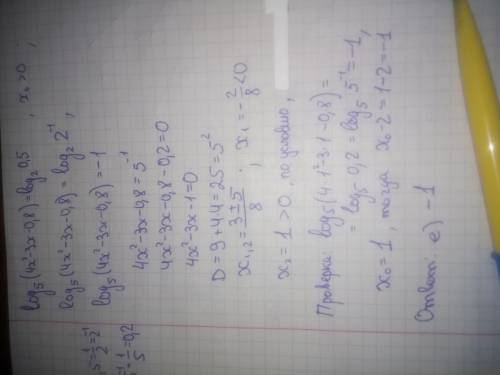 log₅(4x²-3x-0,8)=log₂0,5 , x₀>0 ;
log₅(4x²-3x-0,8)=log₂2⁻¹ ,
log₅(4x²-3x-0,8)=-1
4x²-3x-0,8=5⁻¹
4x²-3x-0,8-0,2=0
4x²-3x-1=0
D=9+4·4=25=5²
x₁,₂=3±5/8 ; x₁=-2/8<0
x₂=1>0, по условию,
Проверка: log₅(4·1²-3·1-0,8)=
=log₅0,2=log₅5⁻¹=-1,
x₀=1, тогда x₀-2=1-2=-1
Ответ: е) -1
,5=1/2=2⁻¹
⁻¹=1/5=0,2